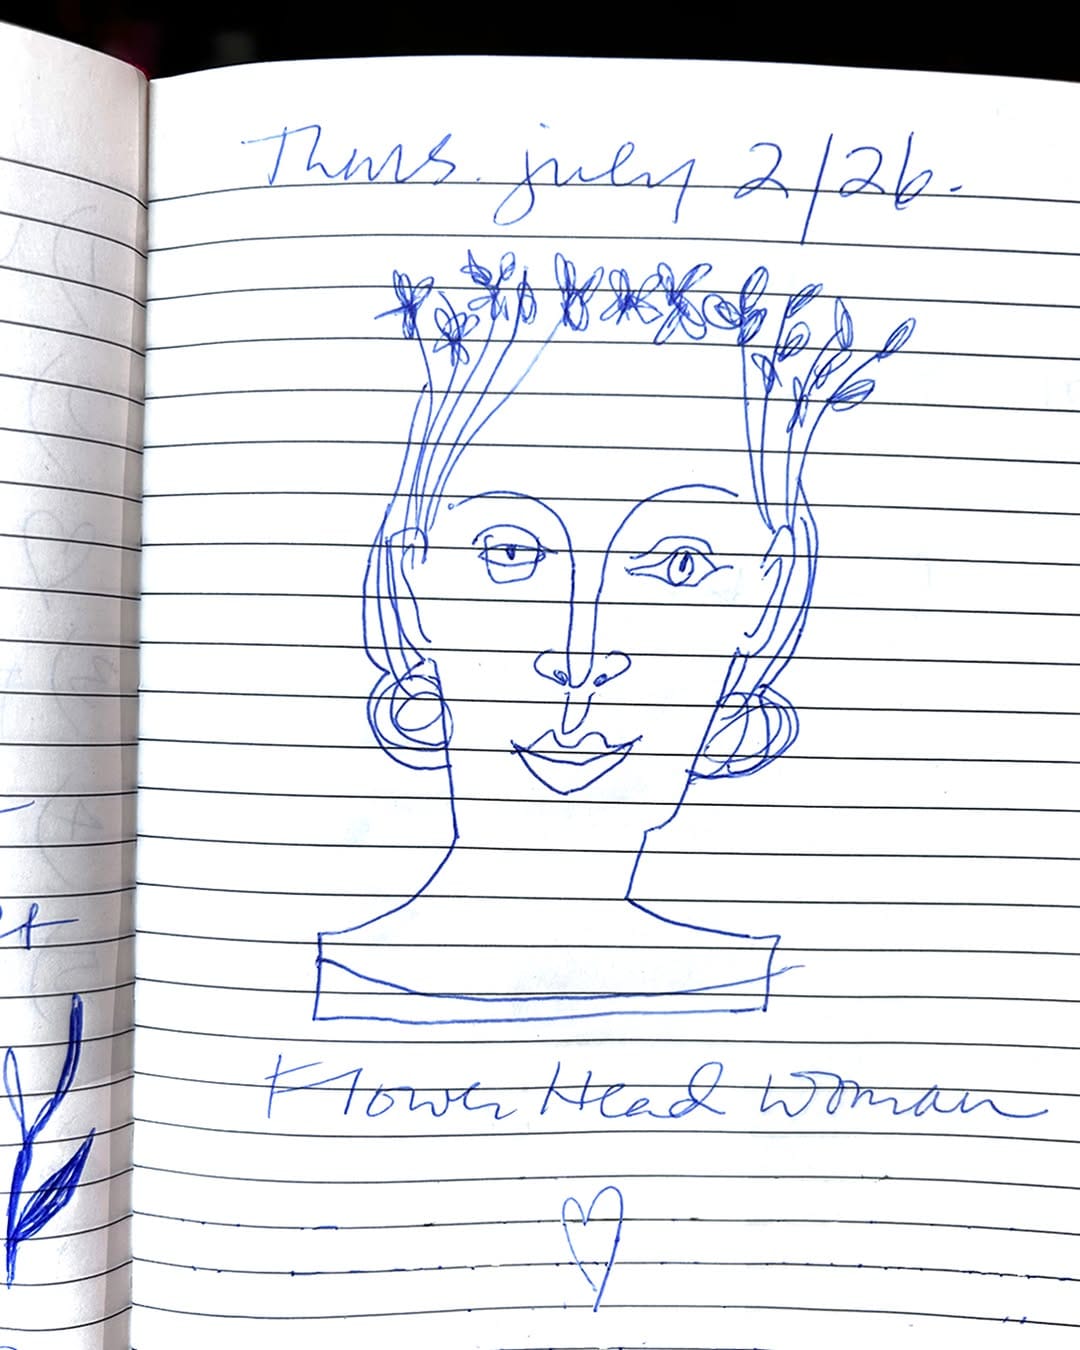 Thurs. july 2/26.
Flower Head Woman